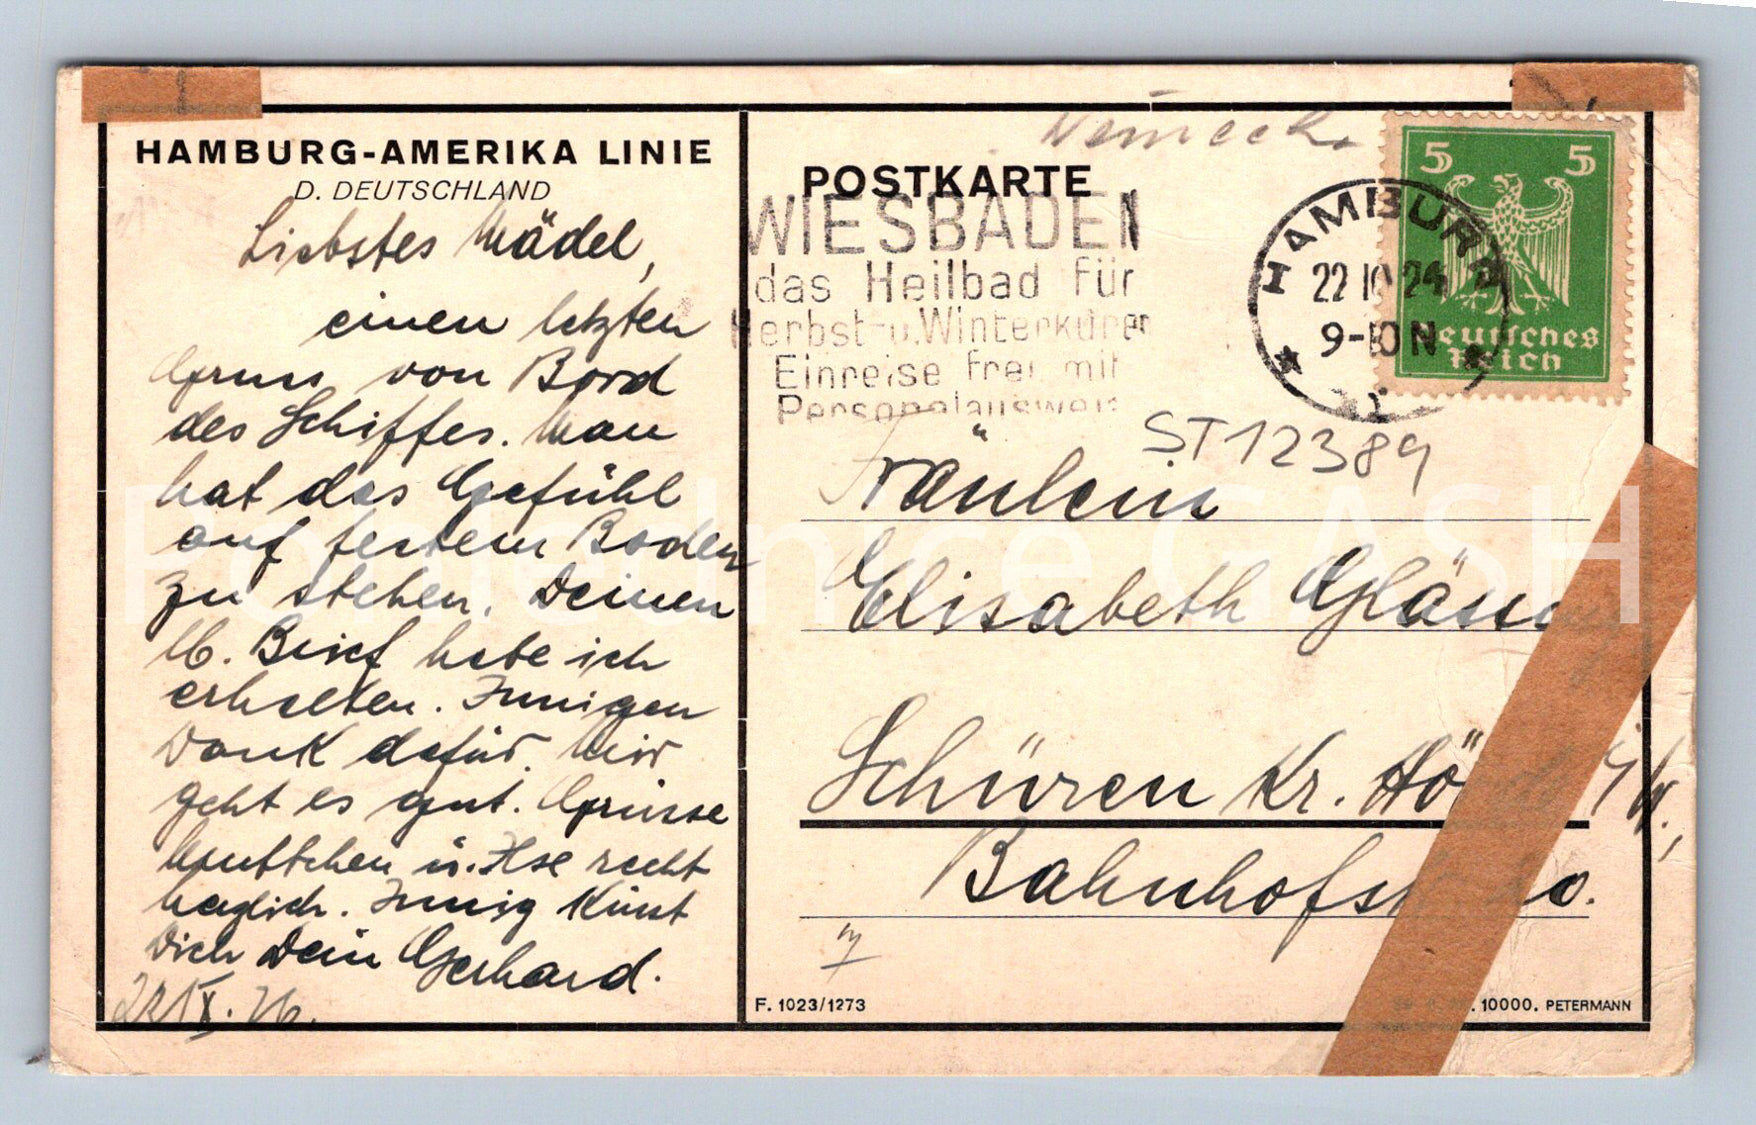 HAMBURG-AMERIKA LINIE
D. DEUTSCHLAND
Liebstes Mädel,
einen letzten
Gruss von Bord
des Schiffes. Man
hat das Gefühl
auf festem Boden
zu stehen. Deinen
lb. Brief habe ich
erhalten. Innigen
Dank dafür. Mir
geht es gut. Grüsse
Muttchen u. Ilse recht
herzlich. Innig küsst
Dich Dein Gerhard.
POSTKARTE
WIESBADEN
das Heilbad für
Herbst- u. Winterkuren
Einreise frei mit
Personalausweis
HAMBURG
22 10 24
9-10 N
1
5 5
Deutsches
Reich
ST12389
Fräulein
Elisabeth
Schüren Kr.
Bahnhofstr.
F. 1023/1273
10000. PETERMANN
Pohlednice GASH